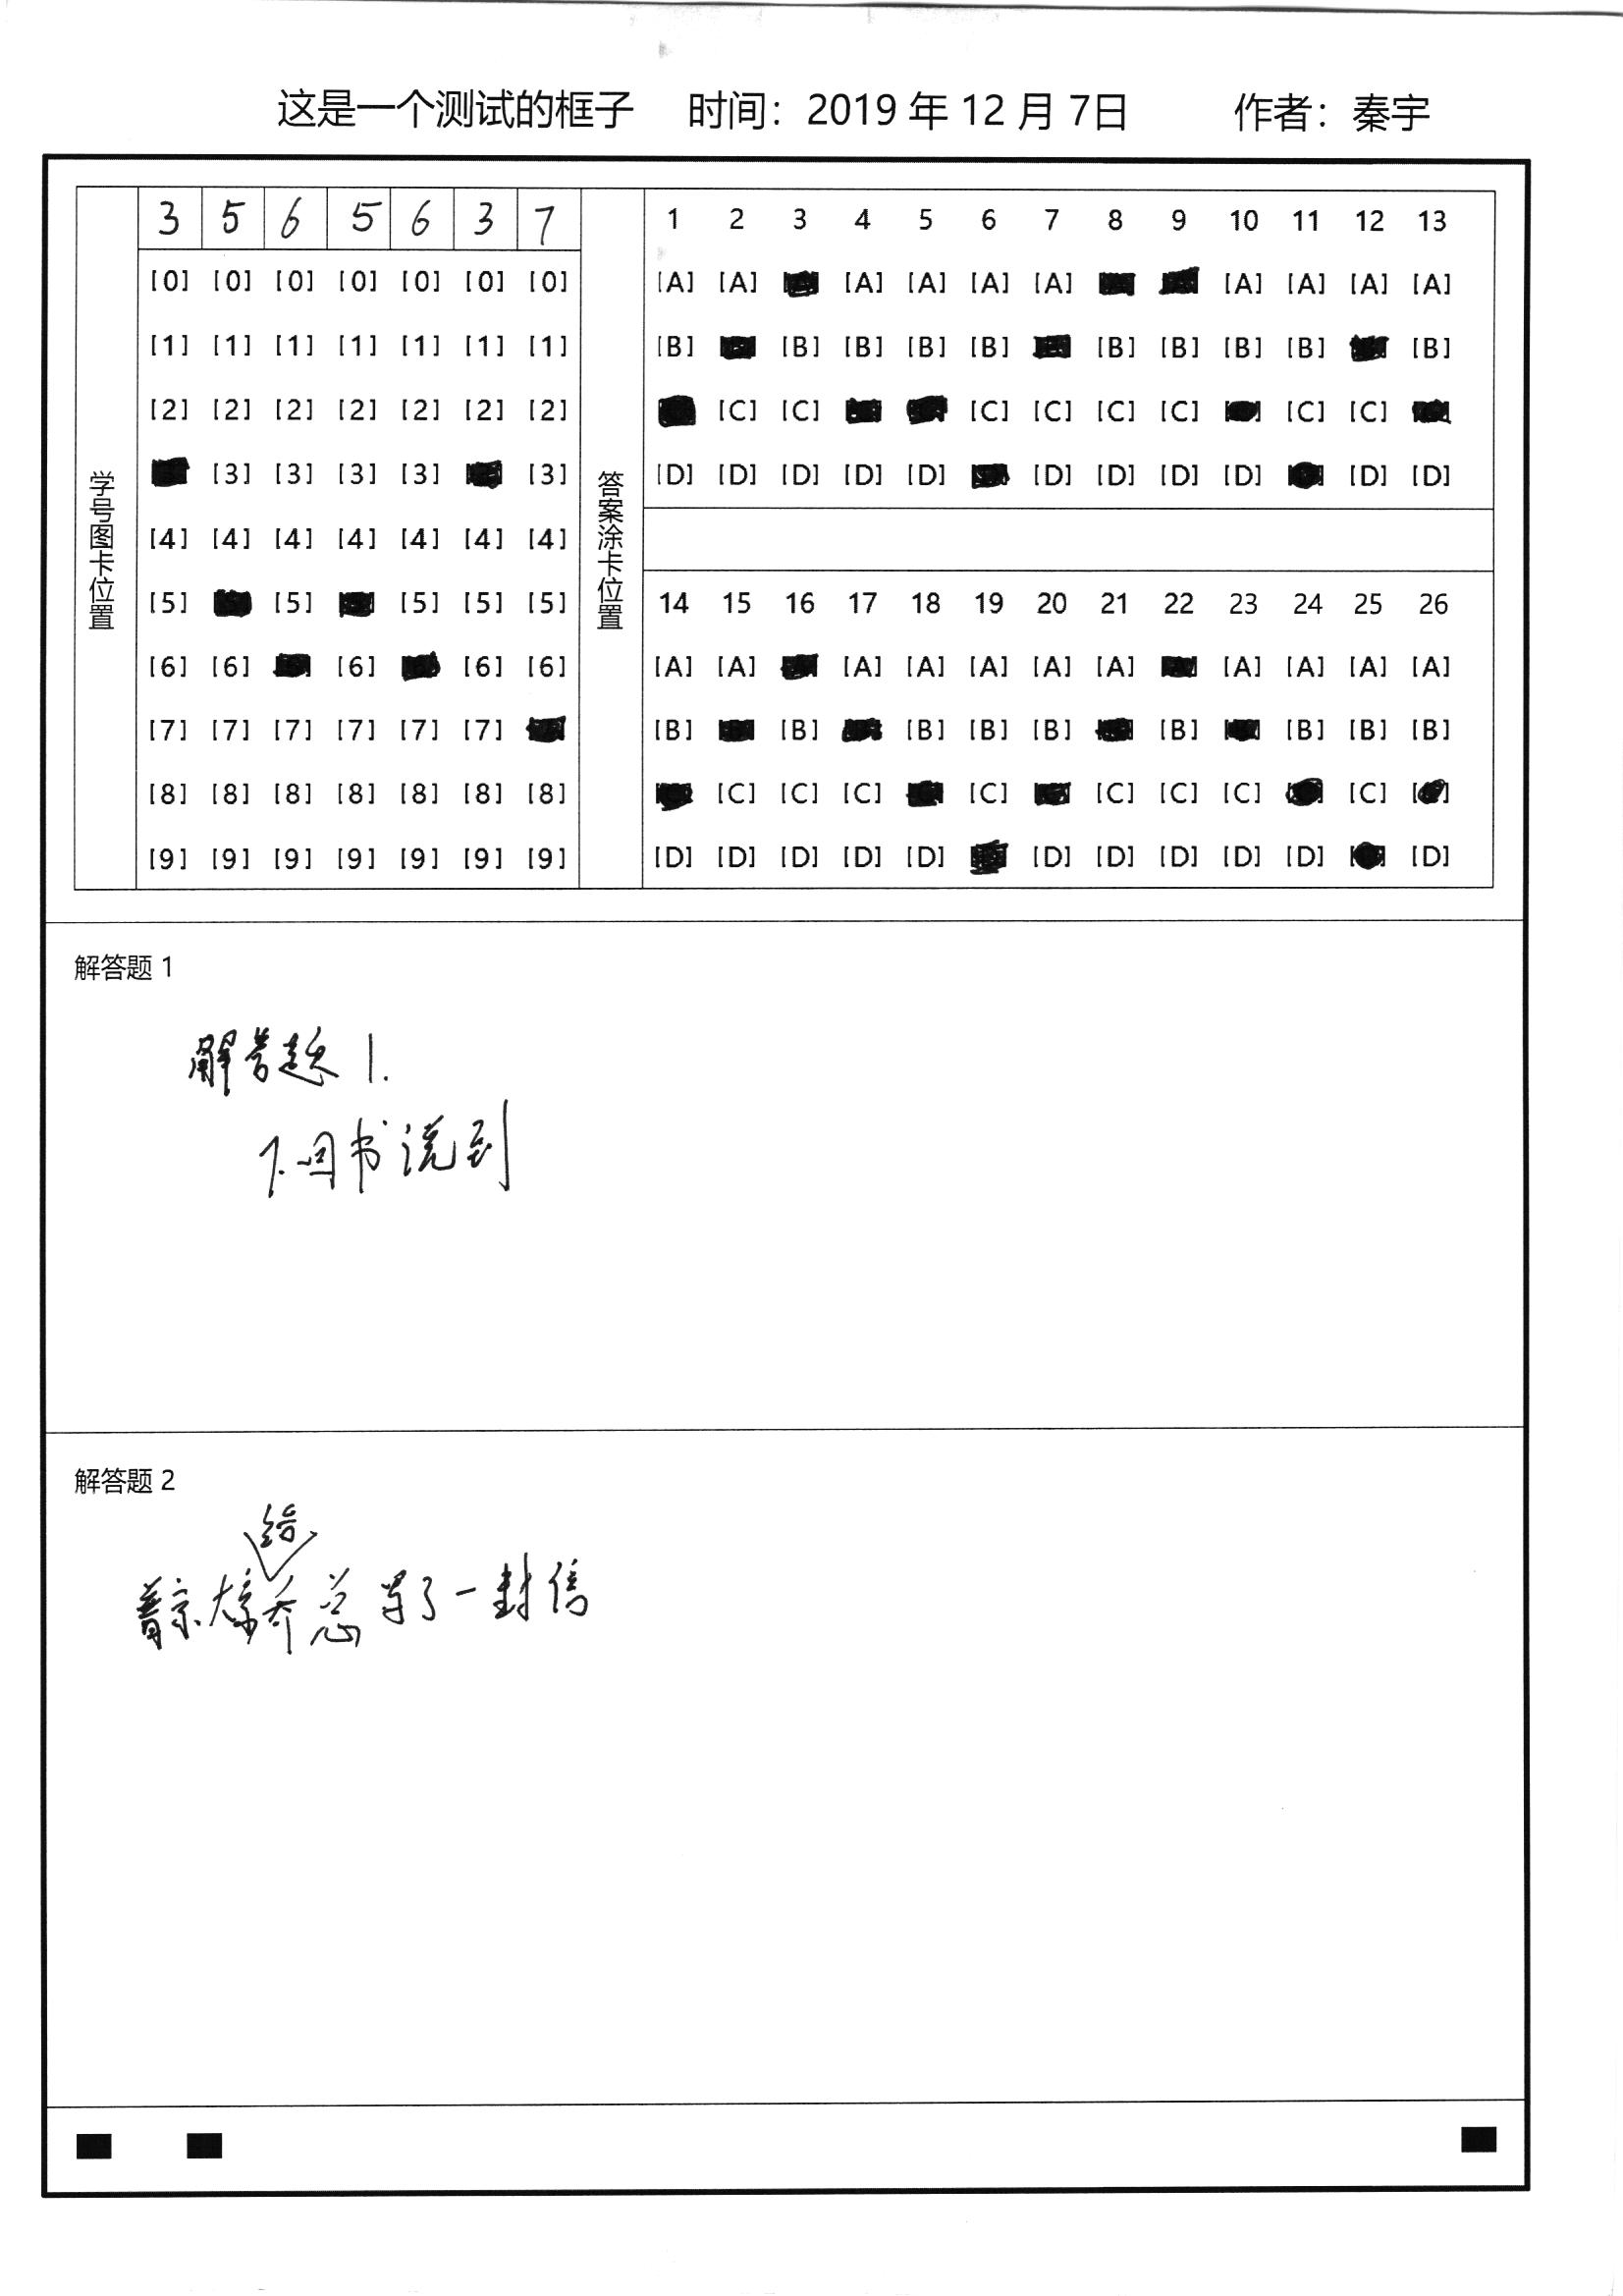 这是一个测试的框子 时间：2019 年 12 月 7日 作者：秦宇
学号图卡位置
3 5 6 5 6 3 7
[0] [0] [0] [0] [0] [0] [0]
[1] [1] [1] [1] [1] [1] [1]
[2] [2] [2] [2] [2] [2] [2]
[3] [3] [3] [3] [3]
[4] [4] [4] [4] [4] [4] [4]
[5] [5] [5] [5] [5]
[6] [6] [6] [6] [6]
[7] [7] [7] [7] [7] [7]
[8] [8] [8] [8] [8] [8] [8]
[9] [9] [9] [9] [9] [9] [9]
答案涂卡位置
1 2 3 4 5 6 7 8 9 10 11 12 13
[A] [A] [A] [A] [A] [A] [A] [A] [A] [A]
[B] [B] [B] [B] [B] [B] [B] [B] [B] [B]
[C] [C] [C] [C] [C] [C] [C] [C]
[D] [D] [D] [D] [D] [D] [D] [D] [D] [D] [D]
14 15 16 17 18 19 20 21 22 23 24 25 26
[A] [A] [A] [A] [A] [A] [A] [A] [A] [A] [A]
[B] [B] [B] [B] [B] [B] [B] [B] [B]
[C] [C] [C] [C] [C] [C] [C] [C]
[D] [D] [D] [D] [D] [D] [D] [D] [D] [D] [D]
解答题 1
解答题 1.
下回书说到
解答题 2
给
普京大帝乔总写了一封信